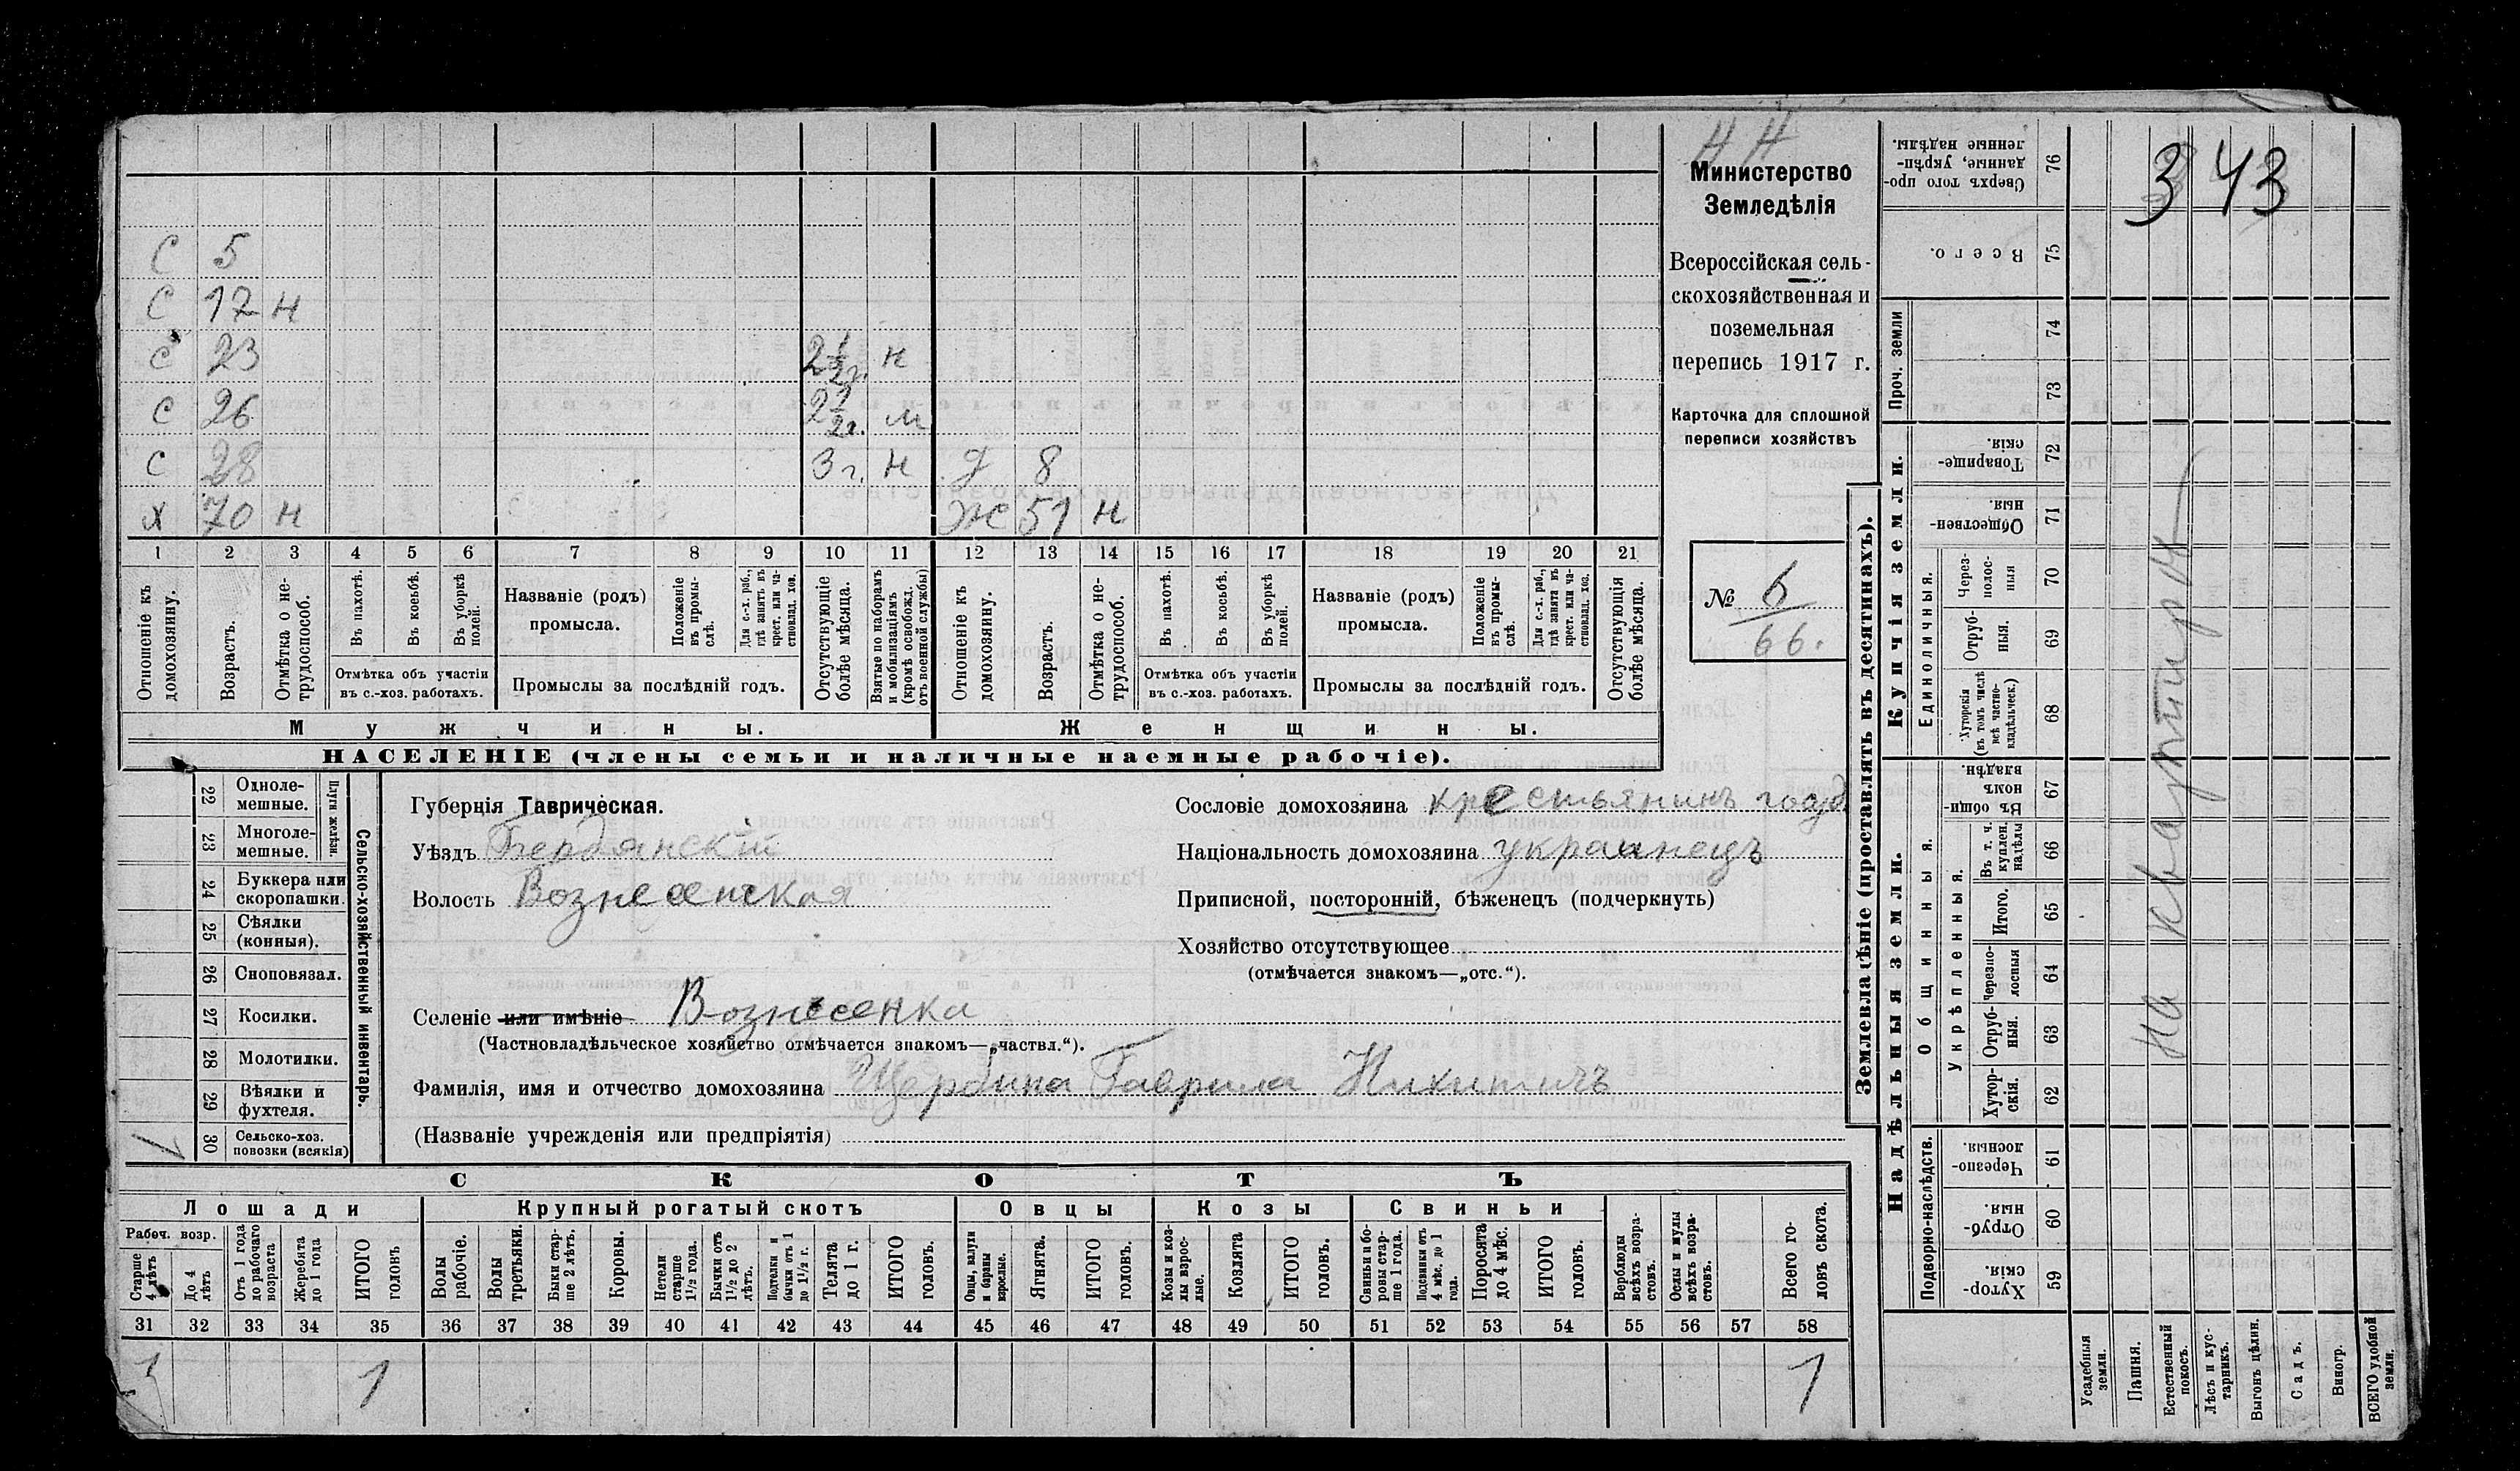 Н Н
343
С 5
С 17 н
С 23 2½ г. н
С 26 2½ г. м
С 28 3 г. н д 8
Х 70 н Ж 51 н
1 2 3 4 5 6 7 8 9 10 11 12 13 14 15 16 17 18 19 20 21
Отношеніе къ домохозяину.
Возрастъ.
Отмѣтка о нетрудоспособ.
Въ пахотѣ.
Въ косьбѣ.
Въ уборкѣ полей.
Отмѣтка объ участіи
въ с.-хоз. работахъ.
Названіе (родъ)
промысла.
Положеніе въ промыслѣ.
Для с.-х. раб., гдѣ занятъ въ крест. или частновлад. хоз.
Промыслы за послѣдній годъ.
Отсутствующіе болѣе мѣсяца.
Взятые по наборамъ и мобилизаціямъ (кромѣ освобожд. отъ военной службы)
Отношеніе къ домохозяину.
Возрастъ.
Отмѣтка о нетрудоспособ.
Въ пахотѣ.
Въ косьбѣ.
Въ уборкѣ полей.
Отмѣтка объ участіи
въ с.-хоз. работахъ.
Названіе (родъ)
промысла.
Положеніе въ промыслѣ.
Для с.-х. раб., гдѣ занята въ крест. или частновлад. хоз.
Промыслы за послѣдній годъ.
Отсутствующія болѣе мѣсяца.
Мужчины.
Женщины.
НАСЕЛЕНІЕ (члены семьи и наличные наемные рабочіе).
Министерство
Земледѣлія
Всероссійская сель-
скохозяйственная и
поземельная
перепись 1917 г.
Карточка для сплошной
переписи хозяйствъ
№ 6
66.
Сельско-хозяйственный инвентарь.
Плуги желѣзн.
22 Одноле-
мешные.
23 Многоле-
мешные.
24 Буккера или
скоропашки.
25 Сѣялки
(конныя).
26 Сноповязал.
27 Косилки.
28 Молотилки.
29 Вѣялки и
фухтеля.
30 Сельско-хоз.
повозки (всякія)
1
Губернія Таврическая.
Уѣздъ Бердянскій
Волость Вознесенская
Селеніе или имѣніе Вознесенка
(Частновладѣльческое хозяйство отмѣчается знакомъ—„частвл.“).
Фамилія, имя и отчество домохозяина Щербина Гаврила Никитичъ
(Названіе учрежденія или предпріятія)
Сословіе домохозяина крестьянинъ госуд
Національность домохозяина украинецъ
Приписной, посторонній, бѣженецъ (подчеркнуть)
Хозяйство отсутствующее
(отмѣчается знакомъ—„отс.“).
СКОТЪ
Лошади
Крупный рогатый скотъ
Овцы
Козы
Свиньи
Рабоч. возр.
Старше 4 лѣтъ
До 4 лѣтъ
Отъ 1 года до рабочаго возраста
Жеребята до 1 года
ИТОГО головъ
Волы рабочіе.
Волы третьяки.
Быки старше 2 лѣтъ.
Коровы.
Нетели старше 1½ года.
Бычки отъ 1½ до 2 лѣтъ.
Подтелки и бычки отъ 1 до 1½ г.
Телята до 1 г.
ИТОГО головъ.
Овцы, валухи и бараны взрослые.
Ягнята.
ИТОГО головъ.
Козы и козлы взрослые.
Козлята
ИТОГО головъ.
Свиньи и боровы старше 1 года.
Подсвинки отъ 4 мѣс. до 1 года.
Поросята до 4 мѣс.
ИТОГО головъ.
Верблюды всѣхъ возрастовъ.
Ослы и мулы всѣхъ возрастовъ.
Всего головъ скота.
31 32 33 34 35 36 37 38 39 40 41 42 43 44 45 46 47 48 49 50 51 52 53 54 55 56 57 58
1 1 1
Землевладѣніе (проставлять въ десятинахъ).
Надѣльныя земли.
Подворно-наслѣдств.
Хуторскія. 59
Отрубныя. 60
Черезполосныя. 61
Общинныя.
Укрѣпленныя.
Хуторскія. 62
Отрубныя. 63
Черезполосныя 64
Итого. 65
Въ т. ч. куплен. надѣлы 66
Въ общиномъ владѣн. 67
Купчія земли.
Единоличныя.
Хуторскія (въ томъ числѣ всѣ частновладѣльческ.) 68
Отрубныя. 69
Черезполосныя 70
Общественныя 71
Товарищескія. 72
Проч. земли
73
74
Всего. 75
Сверхъ того проданные, укрѣпленные надѣлы. 76
Усадебныя земли.
Пашня.
Естественный покосъ.
Лѣсъ и кустарникъ.
Выгонъ цѣлин.
Садъ.
Виногр.
ВСЕГО удобной земли.
На квартирѣ